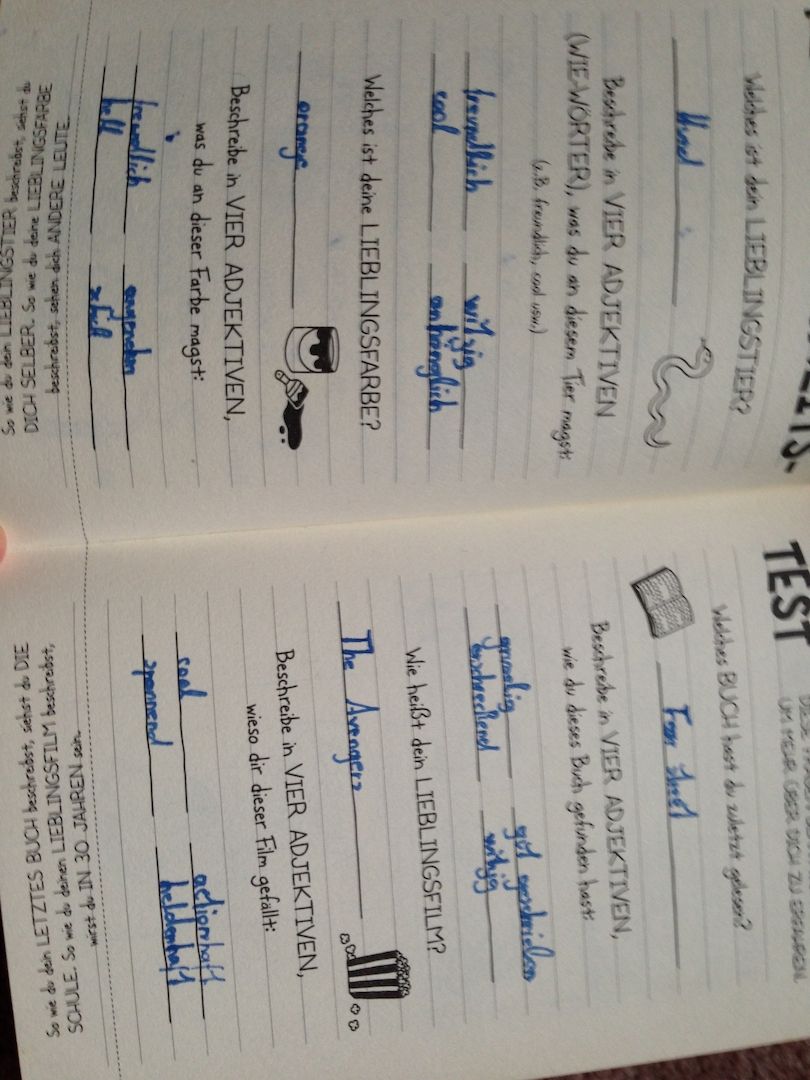 Welches ist dein LIEBLINGSTIER?
Hund
Beschreibe in VIER ADJEKTIVEN
(WIE-WÖRTER), was du an diesem Tier magst:
(z.B. freundlich, cool usw.)
freundlich witzig
cool anhänglich
Welches ist deine LIEBLINGSFARBE?
orange
Beschreibe in VIER ADJEKTIVEN,
was du an dieser Farbe magst:
freundlich angenehm
hell
So wie du dein LIEBLINGSTIER beschreibst, siehst du
DICH SELBER. So wie du deine LIEBLINGSFARBE
beschreibst, sehen dich ANDERE LEUTE.
TEST
UM MEHR ÜBER DICH ZU ERFAHREN!
Welches BUCH hast du zuletzt gelesen?
Beschreibe in VIER ADJEKTIVEN,
wie du dieses Buch gefunden hast:
gruselig gut geschrieben
erschreckend witzig
Wie heißt dein LIEBLINGSFILM?
The Avengers
Beschreibe in VIER ADJEKTIVEN,
wieso dir dieser Film gefällt:
cool actionhaft
spannend heldenhaft
So wie du dein LETZTES BUCH beschreibst, siehst du DIE
SCHULE. So wie du deinen LIEBLINGSFILM beschreibst,
wirst du IN 30 JAHREN sein.